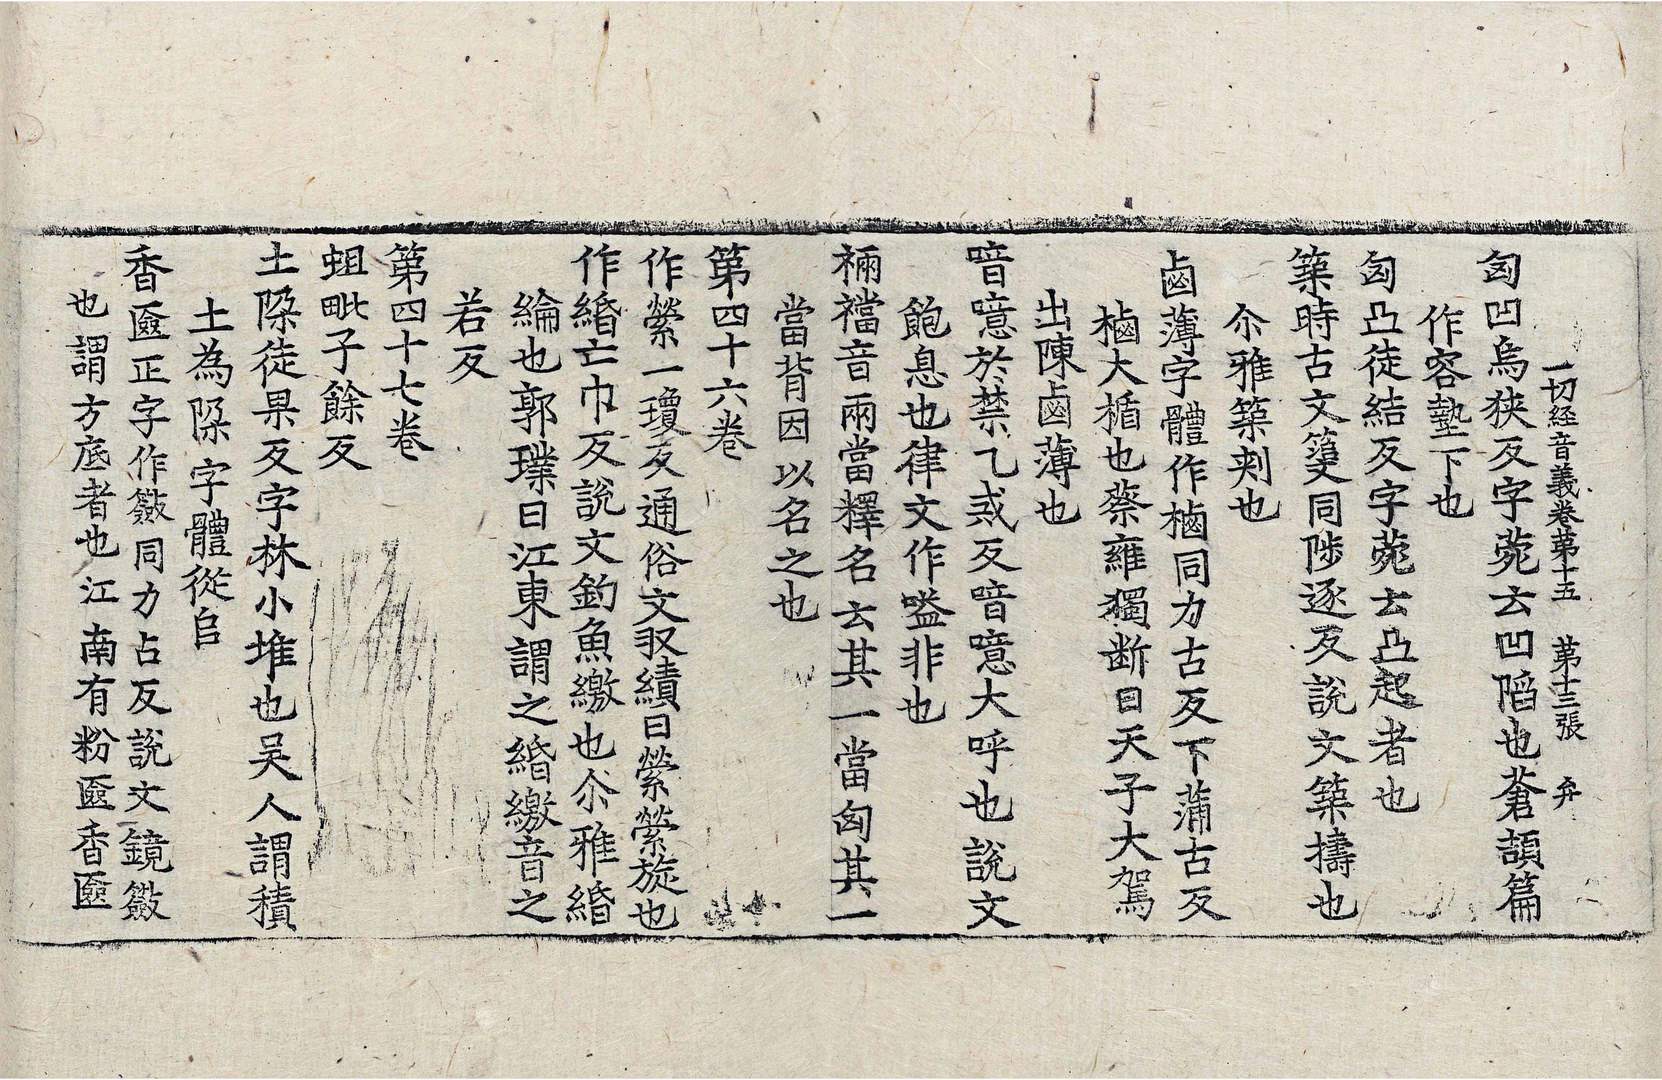 一切経音義卷第十五 第十三張 弁
匈凹烏狹反字菀云凹陷也蒼頡篇
作容墊下也
匈凸徒結反字菀云凸起者也
築時古文䇍同陟逐反說文築擣也
尒雅築刾也
鹵薄字體作樐同力古反下蒲古反
樐大楯也蔡雍獨断曰天子大駕
出陳鹵薄也
喑噫於禁乙戒反喑噫大呼也說文
飽息也律文作嗌非也
裲襠音兩當釋名云其一當匈其一
當背因以名之也
第四十六卷
作縈一瓊反通俗文収績曰縈縈旋也
作緍亡巾反說文釣魚繳也尒雅緍
綸也郭璞曰江東謂之緍繳音之
若反
第四十七卷
蛆毗子餘反
土𨹃徒果反字林小堆也吳人謂積
土為𨹃字體從𨸏
香匳正字作籢同力占反說文鏡籢
也謂方底者也江南有粉匳香匳